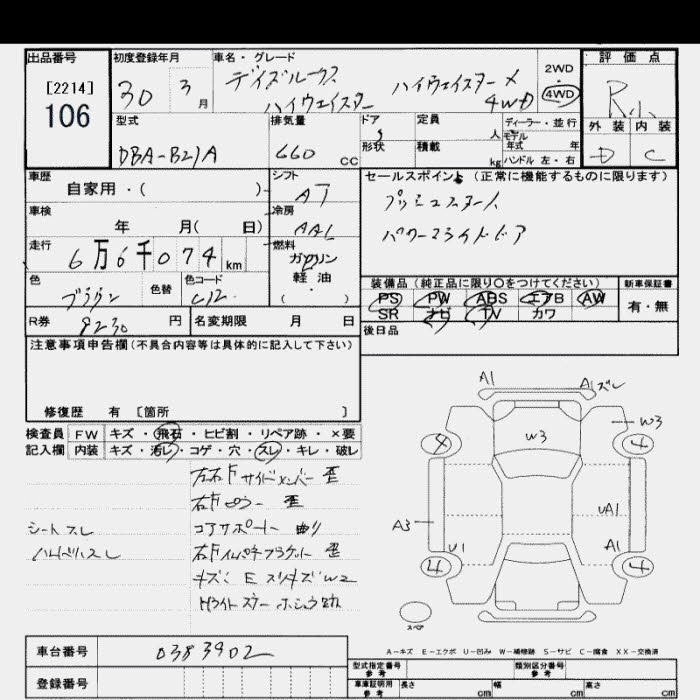 出品番号
[2214]
106
初度登録年月
30 3月
車名・グレード
デイズルークス ハイウェイスターメ
ハイウェイスター 4WD
2WD
・
4WD
評価点
R
外装 内装
D C
型式
DBA-B21A
排気量
660 cc
ドア
5
形状
定員
人
積載
kg
ディーラー・並行
モデル
年式 年
ハンドル 左・右
車歴
自家用・( )
シフト
AT
セールスポイント (正常に機能するものに限ります)
プッシュスタート
パワースライドドア
車検
年 月( 日)
冷房
AAC
走行
6万6千074km
燃料
ガソリン
軽油
( ・ )
色
ブラウン
色替
色コード
C12
装備品 (純正品に限り〇をつけてください)
PS PW ABS エアB AW
SR ナビ TV カワ
新車保証書
有・無
R券
9230円
名変期限 月 日
後日品
注意事項申告欄(不具合内容等は具体的に記入して下さい)
修復歴 有 [箇所 ]
検査員 FW キズ・飛石・ヒビ割・リペア跡・×要
記入欄 内装 キズ・汚レ・コゲ・穴・スレ・キレ・破レ
左右Fサイドメンバー 歪
右Fピラー 歪
シートスレ
コアサポート 曲り
ハンドルスレ
右Fインパネブラケット 歪
キズ、E スリキズW2
A1
A1ズレ
W3
W3
4
4
A3
UA1
U1
A1
4
4
スペア
A-キズ E-エクボ U-凹み W-補修跡 S-サビ C-腐食 XX-交換済
車台番号
0383902
登録番号
型式指定番号
参考
類別区分番号
参考
車庫証明用
参考
長さ cm
幅 cm
高さ cm